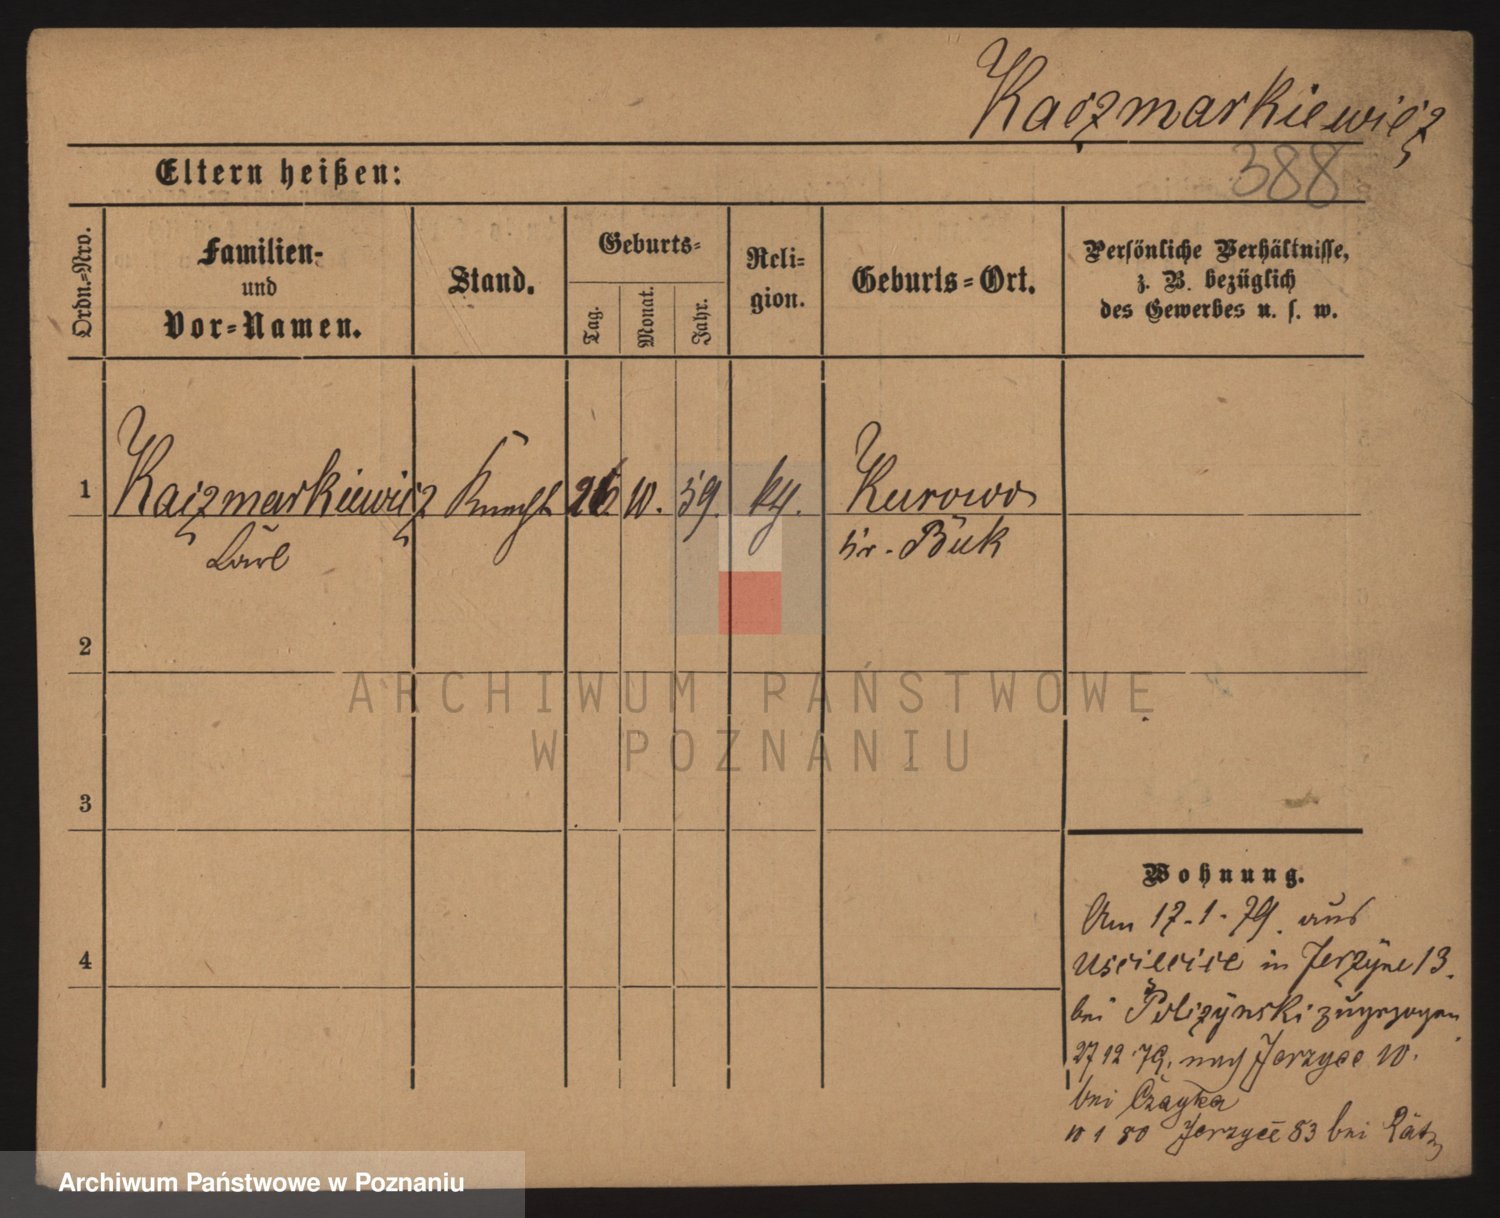 Kaczmarkiewicz
388
Eltern heißen:
Ordn.-Nro.
Familien-
und
Vor-Namen.
Stand.
Geburts-
Tag.
Monat.
Jahr.
Reli-
gion.
Geburts-Ort.
Persönliche Verhältnisse,
z. B. bezüglich
des Gewerbes u. s. w.
1
Kaczmarkiewicz
Carl
Knecht
26
10.
59.
kth.
Kurowo
Kr. Buk
2
3
4
Wohnung.
Am 17.1.79. aus
in Jerzyce 13.
bei zugezogen
27 12 79. nach Jerzyce 10.
bei Czayka
10 1 80 Jerzyce 83 bei Rätz
ARCHIWUM PAŃSTWOWE
W POZNANIU
Archiwum Państwowe w Poznaniu